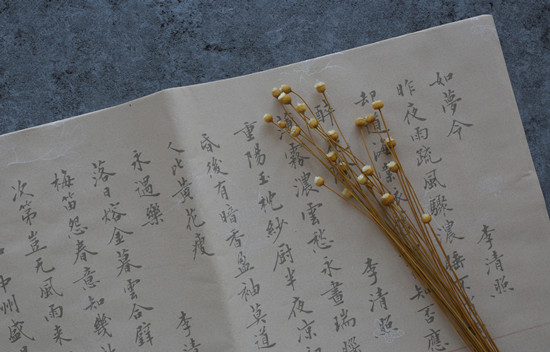 如夢令 李清照
昨夜雨疏風驟濃睡不
卻道海棠依 知否應
醉 李清照
霧濃雲愁永晝瑞腦
重陽玉枕紗厨半夜凉初
昏後有暗香盈袖莫道
人比黄花瘦
永遇樂 李清
落日熔金暮雲合璧
梅笛怨春意知幾
次第豈无風雨来
中州盛